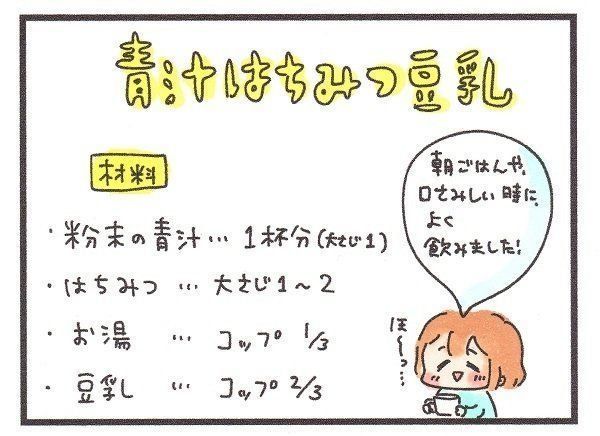 青汁はちみつ豆乳
材料
・粉末の青汁… 1杯分(大さじ1)
・はちみつ … 大さじ1〜2
・お湯 … コップ 1/3
・豆乳 … コップ 2/3
朝ごはんや、
口さみしい時に、
よく
飲みました!
ほ〜っ…